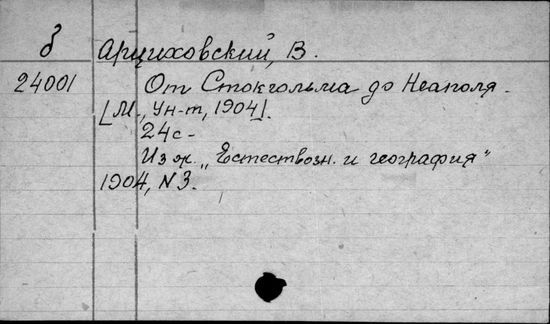 б Арциховский, В.
24001 От Стокгольма до Неаполя.
[М., Ун-т, 1904].
24с-
Из ж. „Естествозн. и география"
1904, N3.